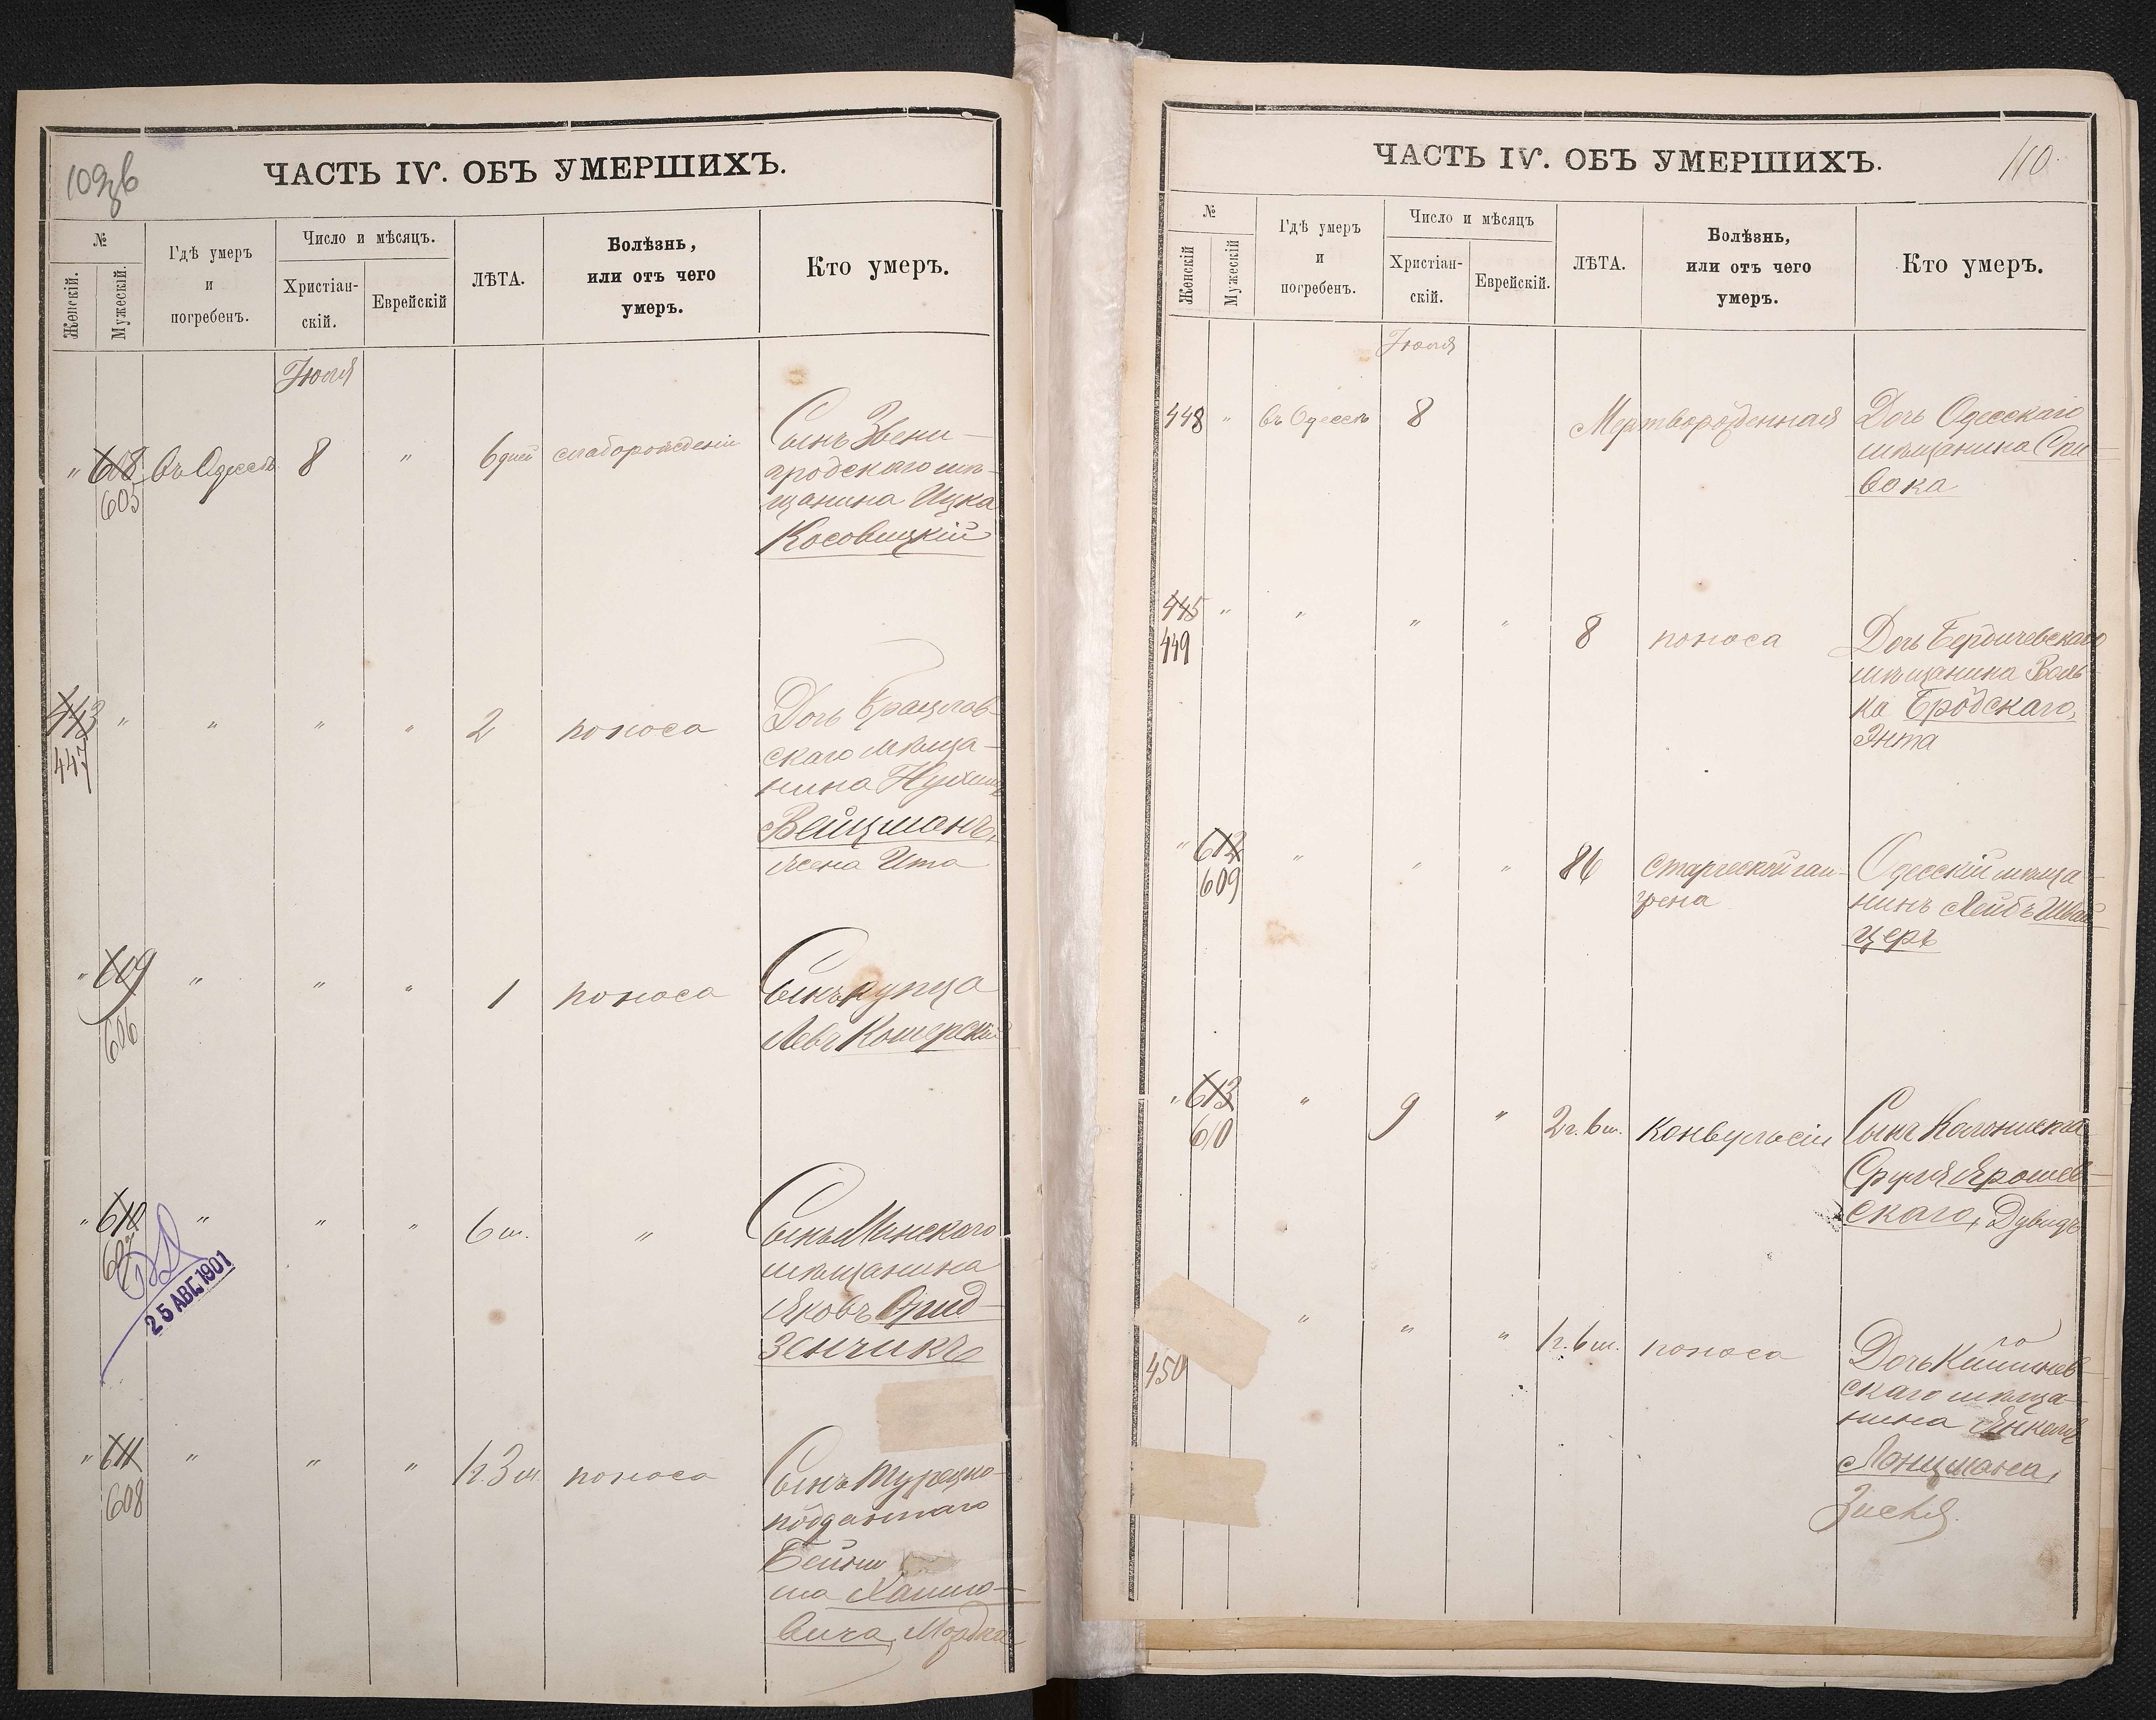 109 об
ЧАСТЬ IV. ОБЪ УМЕРШИХЪ.
№
Женскій.
Мужескій.
Гдѣ умеръ
и
погребенъ.
Число и мѣсяцъ.
Христіан-
скій.
Еврейскій
ЛѢТА.
Болѣзнь,
или отъ чего
умеръ.
Кто умеръ.
Іюля
" 608 въ Одессѣ 8 " 6 дней слаборожденія Сынъ Звени-
605
гродскаго мѣ-
щанина Ицка
Косовицкій
443 " " " " 2 поноса Дочь Брацлав-
447
скаго мѣща-
нина
Вейцманъ,
Ита
" 609 " " " 1 поноса Сынъ купца
606
Левъ Кошерскій
" 610 " " " 6 м. " Сынъ Минскаго
мѣщанина
Яковъ Фрид-
зенчикъ
25 АВГ. 1901
" 611 " " " 1 г. 3 м. поноса Сынъ Турецко-
608
подданнаго
Бейни
ма Хаимо-
вича, Мордко
110
ЧАСТЬ IV. ОБЪ УМЕРШИХЪ.
№
Женскій
Мужескій
Гдѣ умеръ
и
погребенъ.
Число и мѣсяцъ
Христіан-
скій.
Еврейскій.
ЛѢТА.
Болѣзнь,
или отъ чего
умеръ.
Кто умеръ.
Іюля
448 " въ Одессѣ 8 Мертворожденная Дочь Одесскаго
мѣщанина Спи-
вока
445 " " " " 8 поноса Дочь Бердичевскаго
449
мѣщанина Воль-
ка Бродскаго,
Энта
" 612 " " " 86 старческой ган- Одесскій мѣща-
609
грена
нинъ Лейбъ Швай
церъ
" 613 " 9 " 2 г. 6 м. конвульсіи Сынъ
610
Сруля Ярошев-
скаго, Дувидъ
450 " " " 1 г. 6 м. поноса Дочь Кишинев-
скаго мѣща-
нина Янкеля
Лонцмана,
Зисля.